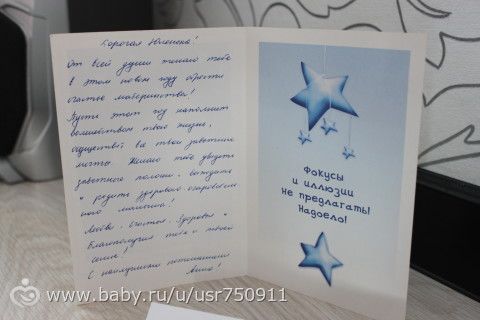 Дорогая Юленька!
От всей души желаю тебе
в этом новом году обрести
счастье материнства!
Пусть этот год наполнит
волшебством твою жизнь,
осуществит ва твои заветные
мечты. Желаю тебе увидеть
заветные полоски, выждать
и родить здорового очаровательн
ого малыша!
Любви, счастья, здоровья и
благополучия тебе и твоей
семье!
С наилучшими пожеланиями
Фокусы
и иллюзии
Не предлагать!
Надоело!
www.baby.ru/u/usr750911